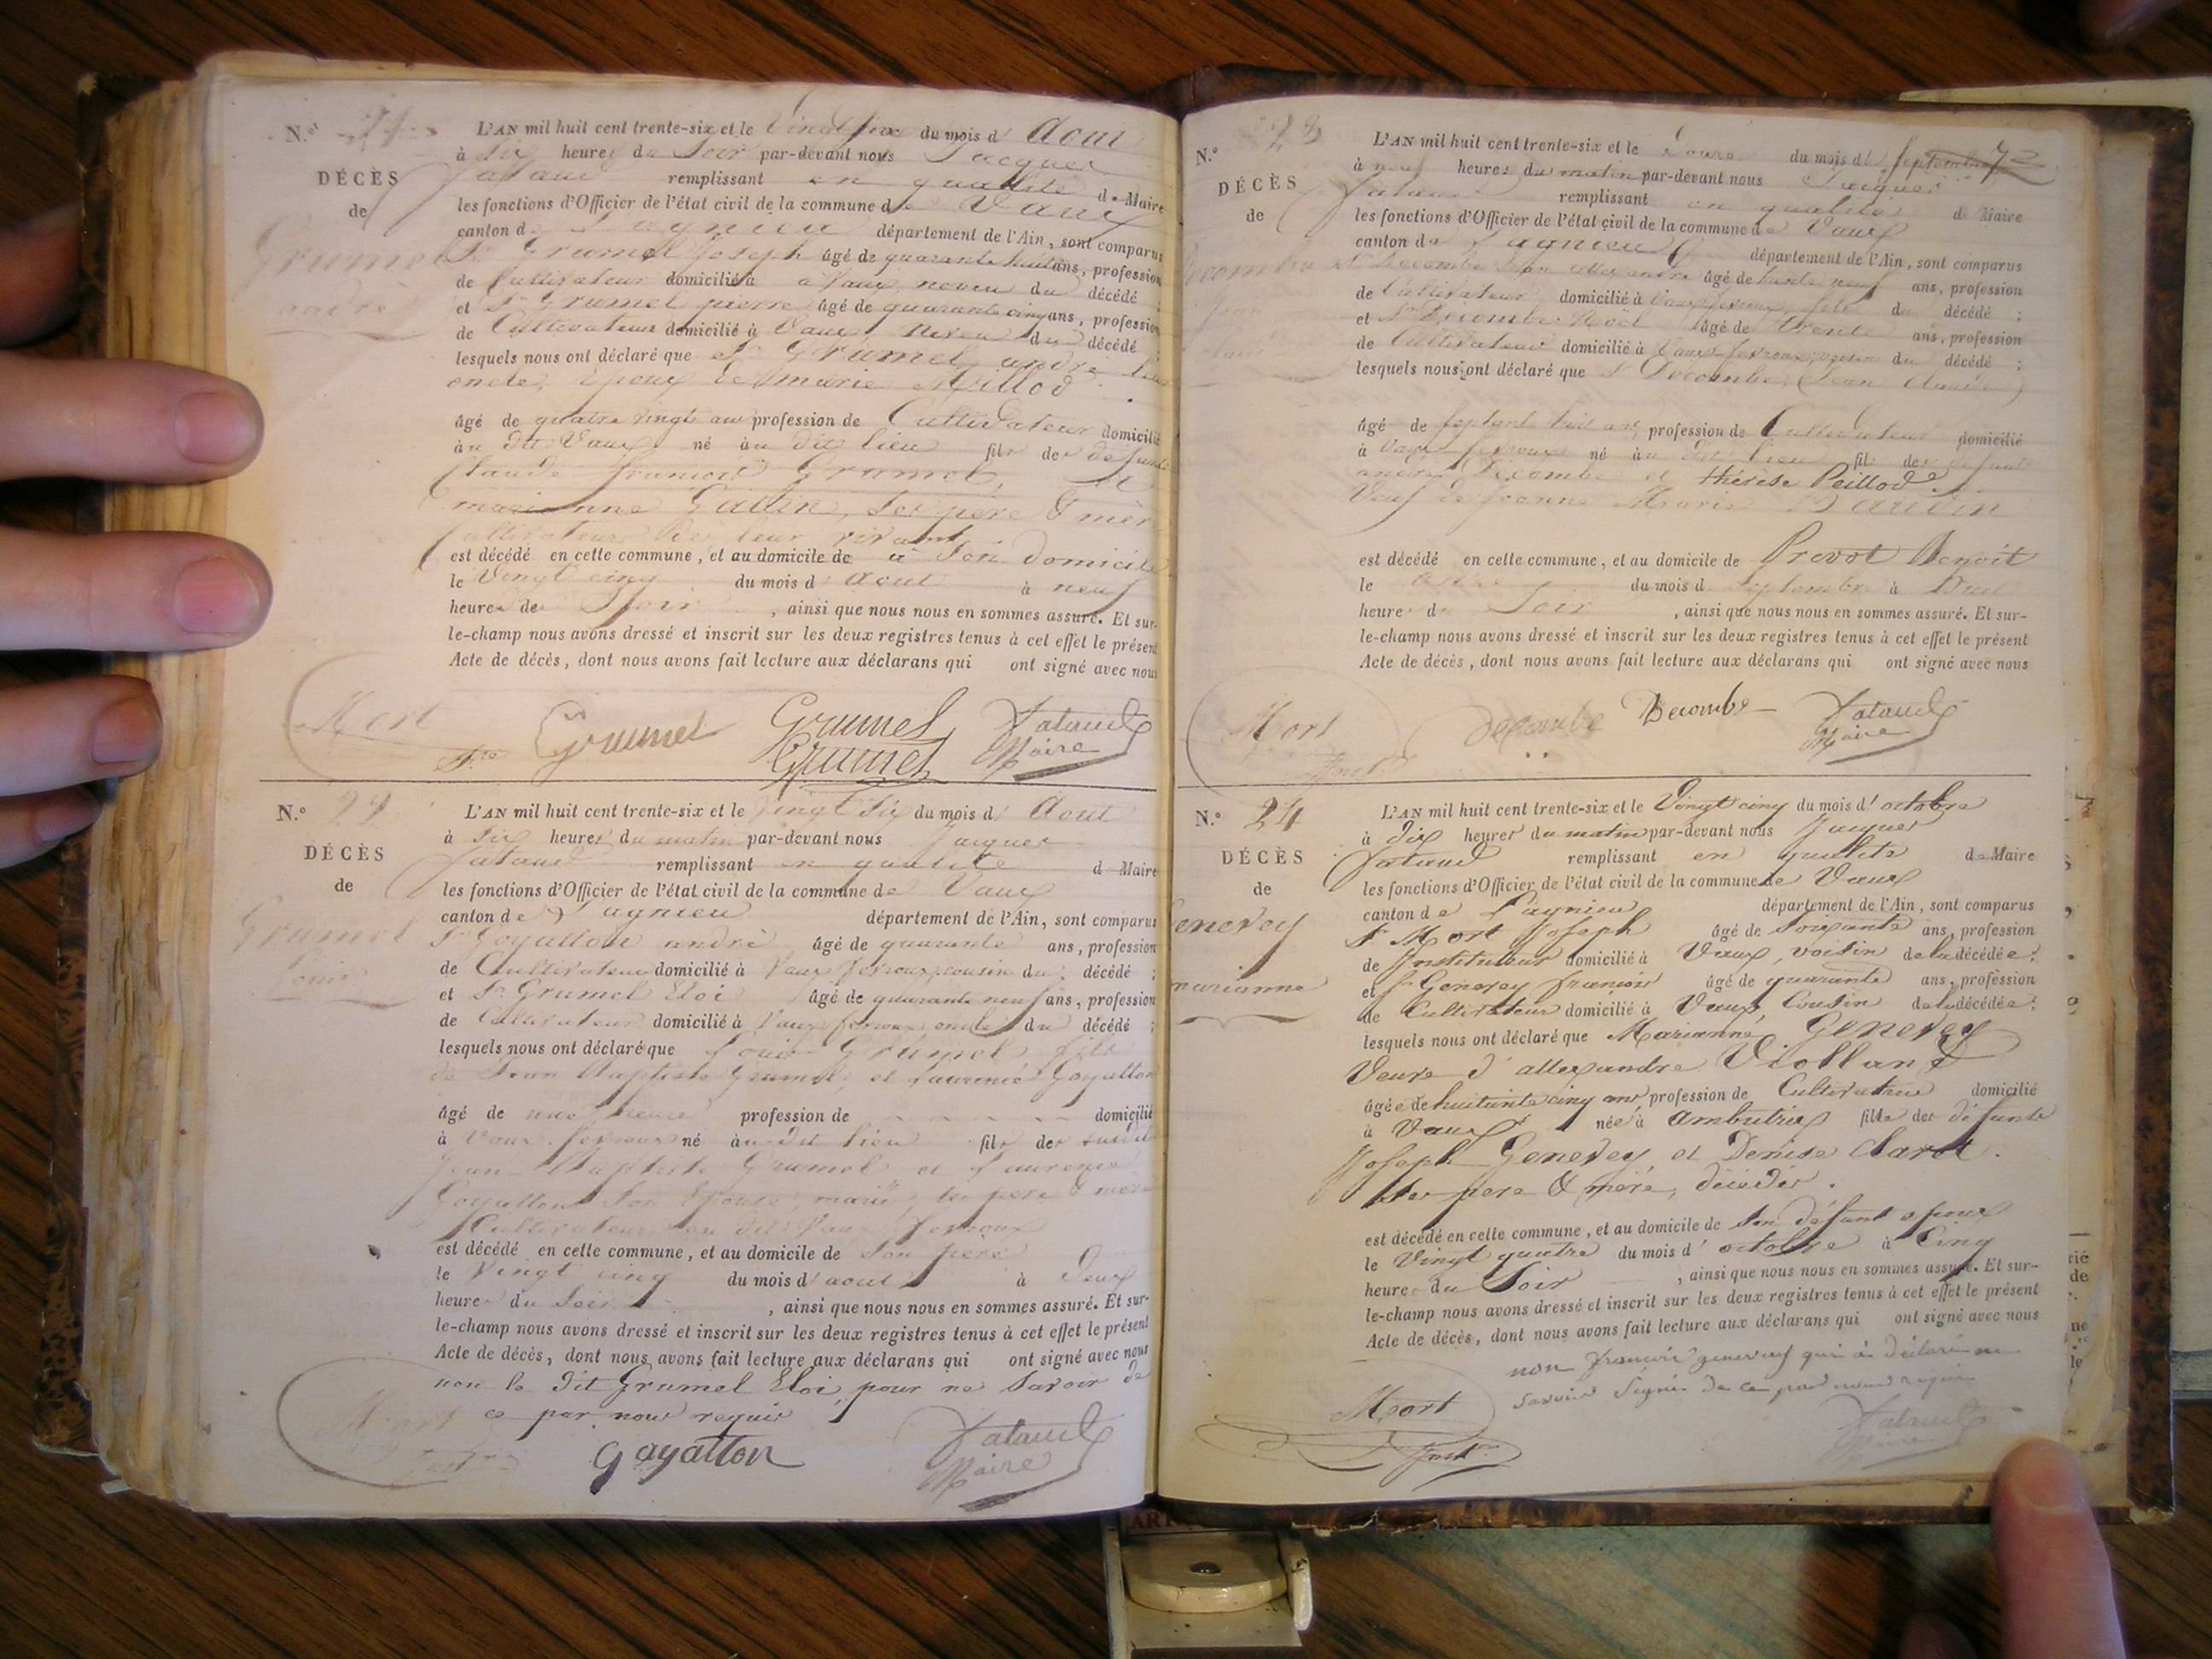 N.º 21
L'AN mil huit cent trente-six et le Vingt six du mois d' Aout
à Six heures du Soir par-devant nous Jacques
DÉCÈS
Jataud remplissant en qualité de Maire
de
les fonctions d'Officier de l'état civil de la commune de Vaux
canton de Lagnieu département de l'Ain, sont comparus
Grumel
Sr Grumel Joseph âgé de quarante huit ans, profession
de Cultivateur domicilié à à Vaux neveu du décédé ;
andré
et Sr Grumel pierre âgé de quarante cinq ans, profession
de Cultivateur domicilié à Vaux, Neveu du décédé ;
lesquels nous ont déclaré que Sr Grumel andré leur
oncle, Epoux de marie Millod
âgé de quatre vingt ans profession de Cultivateur domicilié
au dit Vaux né au dit lieu fils des defunts
Claude françois Grumel, et
marianne Gallin, Ses père & mère
Cultivateurs de leur vivant
est décédé en cette commune, et au domicile de à Son domicile
le Vingt cinq du mois d' Aout à neuf
heures du Soir , ainsi que nous nous en sommes assuré. Et sur-
le-champ nous avons dressé et inscrit sur les deux registres tenus à cet effet le présent
Acte de décès, dont nous avons fait lecture aux déclarans qui ont signé avec nous
Mort Grumel Grumel Jataud
Grumel Maire
N.º 22
L'AN mil huit cent trente-six et le Vingt Six du mois d' Aout
à Six heures du matin par-devant nous Jacques
DÉCÈS
Jataud remplissant en qualité de Maire
de
les fonctions d'Officier de l'état civil de la commune de Vaux
canton de Lagnieu département de l'Ain, sont comparus
Grumel
Sr Goyatton andré âgé de quarante ans, profession
Louis
de Cultivateur domicilié à Vaux fevroux, cousin du décédé ;
et Sr Grumel Eloi âgé de quarante neuf ans, profession
de Cultivateur domicilié à Vaux fevroux oncle du décédé ;
lesquels nous ont déclaré que Louis Grumel fils
de Jean Baptiste Grumel et Laurence Goyatton
âgé de une heure profession de domicilié
à Vaux fevroux né au dit lieu fils des susdits
Jean Baptiste Grumel et Laurence
Goyatton Son Epouse, mariés, ses père & mère
Cultivateurs au dit Vaux fevroux
est décédé en cette commune, et au domicile de Son père
le Vingt cinq du mois d' aout à Deux
heures du Soir , ainsi que nous nous en sommes assuré. Et sur-
le-champ nous avons dressé et inscrit sur les deux registres tenus à cet effet le présent
Acte de décès, dont nous avons fait lecture aux déclarans qui ont signé avec nous
non le dit Grumel Eloi, pour ne Savoir de
ce par nous requis
Mort Goyatton Jataud
Maire
N.º 23
L'AN mil huit cent trente-six et le Douze du mois de Septembre 73
à neuf heures du matin par-devant nous Jacques
DÉCÈS
Jataud remplissant en qualité de Maire
de
les fonctions d'Officier de l'état civil de la commune de Vaux
canton de Lagnieu département de l'Ain, sont comparus
Decombe
Sr Decombe Jean allexandre âgé de trente neuf ans, profession
de Cultivateur domicilié à Vaux fevroux, fils du décédé ;
Jean
et Sr Decombe Noël âgé de trente ans, profession
de Cultivateur domicilié à Vaux fevroux, du décédé ;
lesquels nous ont déclaré que Sr Decombe (Jean Claude)
âgé de septante huit ans profession de Cultivateur domicilié
à Vaux fevroux né au dit lieu fils des defunts
Decombe et thérèse Peillod
Veuf de Jeanne Marie Baudin
est décédé en cette commune, et au domicile de Prevot Benoit
le du mois de Septembre à
heures du Soir , ainsi que nous nous en sommes assuré. Et sur-
le-champ nous avons dressé et inscrit sur les deux registres tenus à cet effet le présent
Acte de décès, dont nous avons fait lecture aux déclarans qui ont signé avec nous
Mort Decombe Decombe Jataud
Maire
N.º 24
L'AN mil huit cent trente-six et le Vingt cinq du mois d' octobre
à Dix heures du matin par-devant nous Jacques
DÉCÈS
Jataud remplissant en qualité de Maire
de
les fonctions d'Officier de l'état civil de la commune de Vaux
canton de Lagnieu département de l'Ain, sont comparus
Genevey
Sr Mort Joseph âgé de Soixante ans, profession
de Instituteur domicilié à Vaux, voisin de la décédée ;
marianne
et Sr Genevey françois âgé de quarante ans, profession
de Cultivateur domicilié à Vaux, Cousin de la décédée ;
lesquels nous ont déclaré que Marianne Genevey
Veuve d'allexandre Violland
âgée de huitante cinq ans profession de Cultivatrice domicilié
à Vaux née à Ambutrix fille des défunts
Joseph Genevey et Denise Clarot.
Ses pere & mère, décédés.
est décédé en cette commune, et au domicile de Son défunt epoux
le Vingt quatre du mois d' octobre à Cinq
heures du Soir , ainsi que nous nous en sommes assuré. Et sur-
le-champ nous avons dressé et inscrit sur les deux registres tenus à cet effet le présent
Acte de décès, dont nous avons fait lecture aux déclarans qui ont signé avec nous
non françois genevey qui à déclaré ne
Savoir Signer de ce par nous requis
Mort Jataud
Inst. Maire